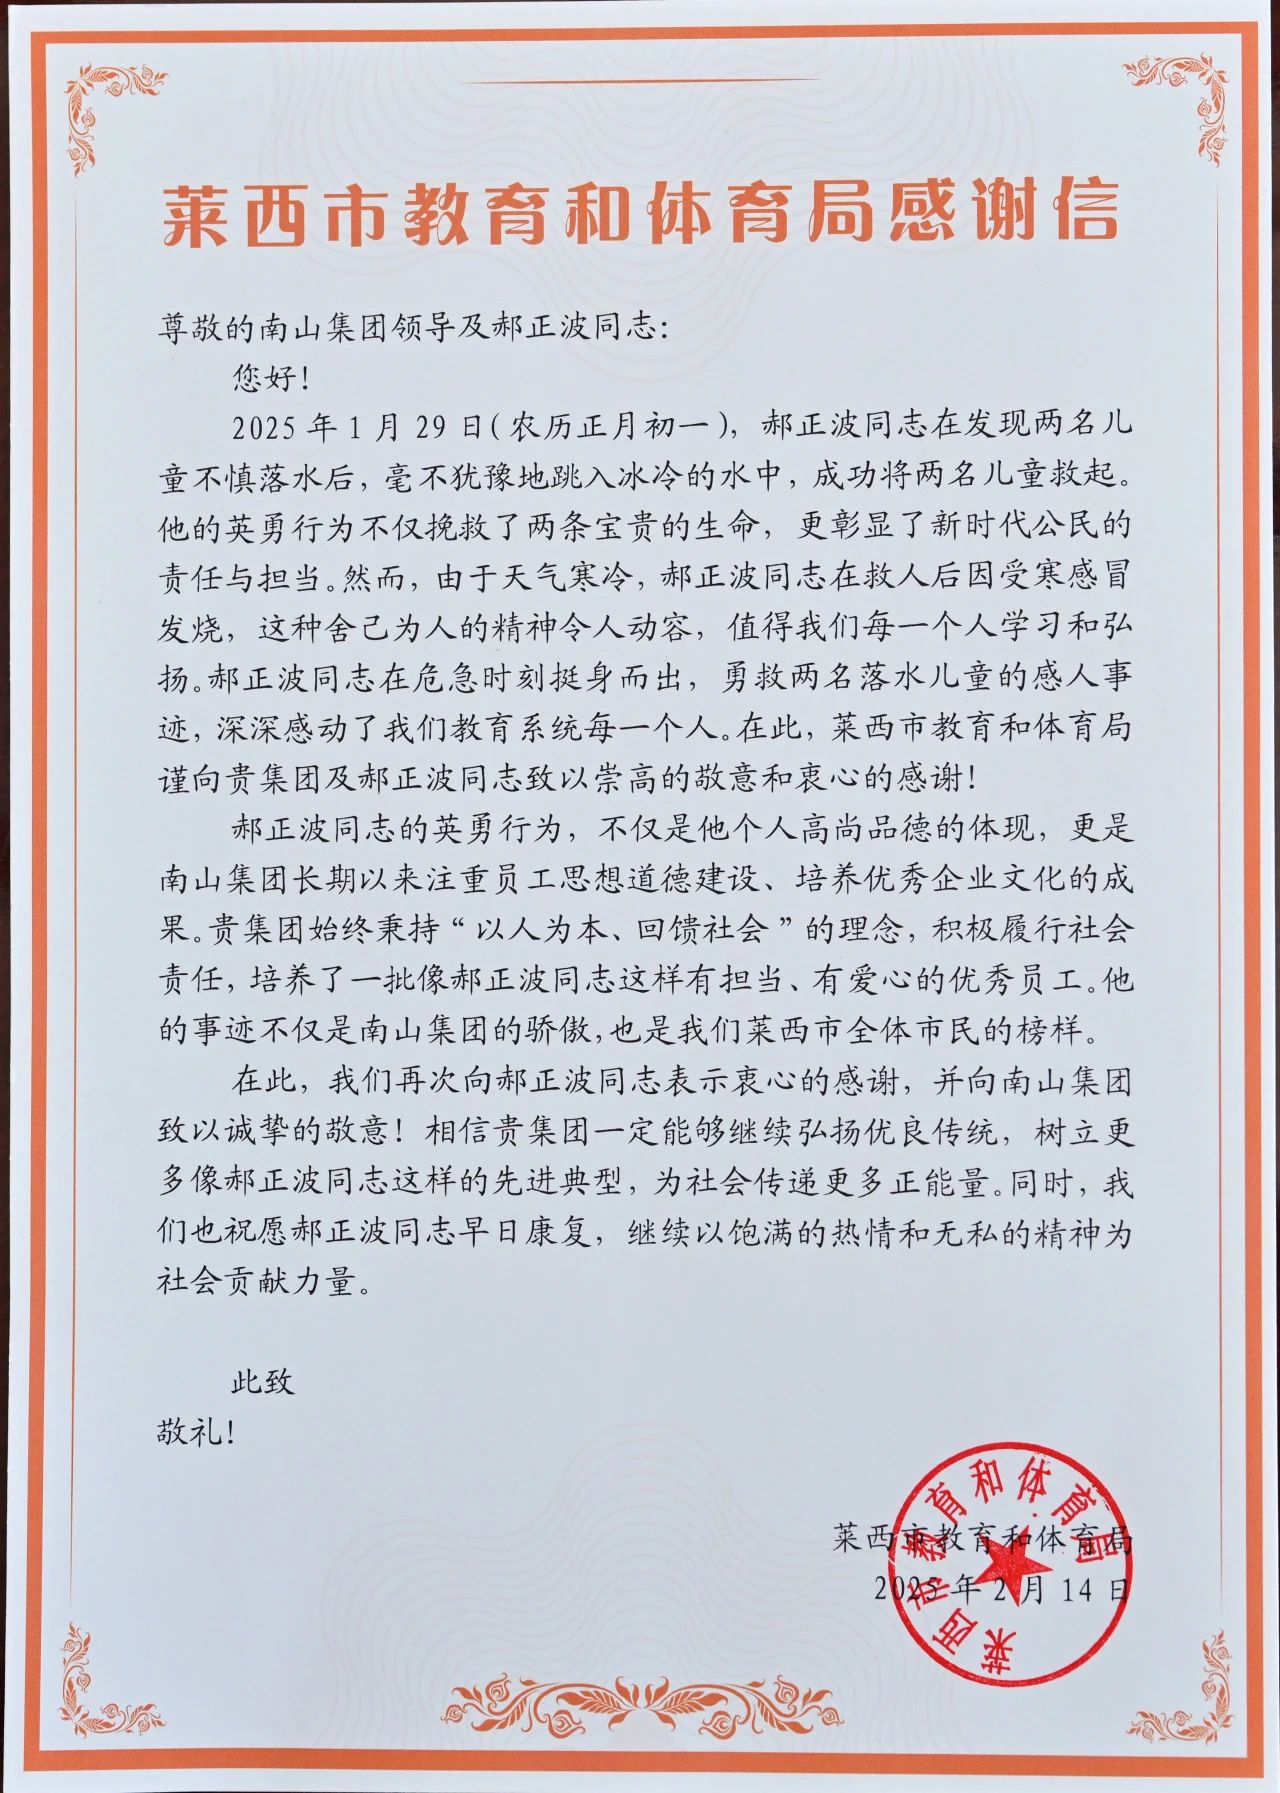 莱西市教育和体育局感谢信
尊敬的南山集团领导及郝正波同志：
您好！
2025年1月29日（农历正月初一），郝正波同志在发现两名儿
童不慎落水后，毫不犹豫地跳入冰冷的水中，成功将两名儿童救起。
他的英勇行为不仅挽救了两条宝贵的生命，更彰显了新时代公民的
责任与担当。然而，由于天气寒冷，郝正波同志在救人后因受寒感冒
发烧，这种舍己为人的精神令人动容，值得我们每一个人学习和弘
扬。郝正波同志在危急时刻挺身而出，勇救两名落水儿童的感人事
迹，深深感动了我们教育系统每一个人。在此，莱西市教育和体育局
谨向贵集团及郝正波同志致以崇高的敬意和衷心的感谢！
郝正波同志的英勇行为，不仅是他个人高尚品德的体现，更是
南山集团长期以来注重员工思想道德建设、培养优秀企业文化的成
果。贵集团始终秉持“以人为本、回馈社会”的理念，积极履行社会
责任，培养了一批像郝正波同志这样有担当、有爱心的优秀员工。他
的事迹不仅是南山集团的骄傲，也是我们莱西市全体市民的榜样。
在此，我们再次向郝正波同志表示衷心的感谢，并向南山集团
致以诚挚的敬意！相信贵集团一定能够继续弘扬优良传统，树立更
多像郝正波同志这样的先进典型，为社会传递更多正能量。同时，我
们也祝愿郝正波同志早日康复，继续以饱满的热情和无私的精神为
社会贡献力量。
此致
敬礼！
莱西市教育和体育局
2025年2月14日
莱西市教育和体育局